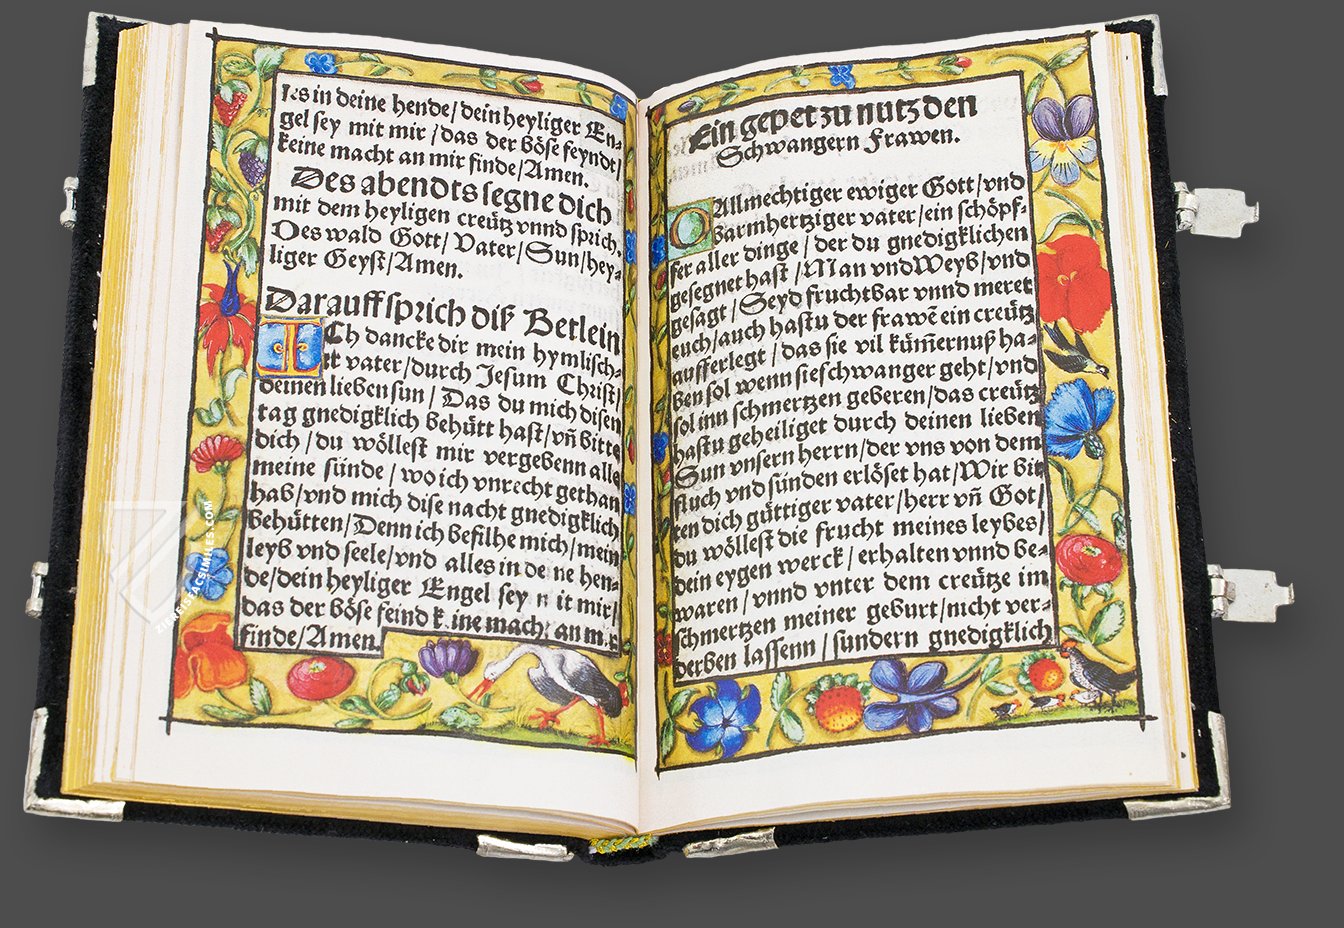 les in deine hende/dein heyliger En⸗
gel sey mit mir/das der böse feyndt/
keine macht an mir finde/Amen.
Des abendts segne dich
mit dem heyligen creütz vnnd sprich.
Des wald Gott/Vater/Sun/hey⸗
liger Geyst/Amen.
Darauff sprich diß Betlein
ICh dancke dir mein hymlisch⸗
vater/durch Jesum Christ/
deinen lieben sun/Das du mich disen
tag gnedigklich behütt hast/vñ bitt
dich/du wöllest mir vergebenn alle
meine sünde/wo ich vnrecht gethan
hab/vnd mich dise nacht gnedigklich
behütten/Denn ich befilhe mich/mein
leyb vnd seele/vnd alles in de ne hen⸗
de/dein heyliger Engel sey mit mir/
das der böse feind k ine mach an m r
finde/Amen.
Ein gepet zu nutz den
Schwangern Frawen.
O Allmechtiger ewiger Gott/vnd
Barmhertziger vater/ein schöpf⸗
fer aller dinge/der du gnedigklichen
gesegnet hast/Man vnd Weyb/vnd
gesagt/Seyd fruchtbar vnnd meret
euch/auch hastu der frawẽ ein creütz
aufferlegt/das sie vil küm̃ernuß ha⸗
ben sol wenn sie schwanger geht/vnd
sol inn schmertzen geberen/das creütz
hastu geheiliget durch deinen lieben
Sun vnsern herrn/der vns von dem
fluch vnd sünden erlöset hat/Wir bit
ten dich güttiger vater/herr vñ Got/
du wöllest die frucht meines leybes/
dein eygen werck/erhalten vnnd be⸗
waren/vnnd vnter dem creütze im
schmertzen meiner geburt/nicht ver⸗
derben lassenn/sundern gnedigklich
ZIEREISFACSIMILES.COM